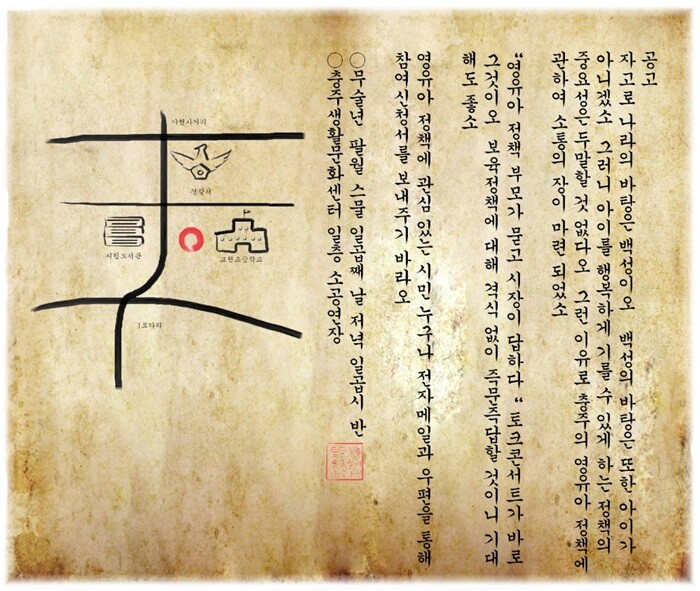 공고
자고로 나라의 바탕은 백성이오 백성의 바탕은 또한 아이가
아니겠소 그러니 아이를 행복하게 기를 수 있게 하는 정책의
중요성은 두말할 것 없다오 그런 이유로 충주의 영유아 정책에
관하여 소통의 장이 마련 되었소
“영유아 정책 부모가 묻고 시장이 답하다 “ 토크콘서트가 바로
그것이오 보육정책에 대해 격식 없이 즉문즉답할 것이니 기대
해도 좋소
영유아 정책에 관심 있는 시민 누구나 전자메일과 우편을 통해
참여 신청서를 보내주기 바라오
○무술년 팔월 스물 일곱째 날 저녁 일곱시 반
○충주생활문화센터 일층 소공연장
야현사거리
경찰서
시립도서관
교현초등학교
1로타리